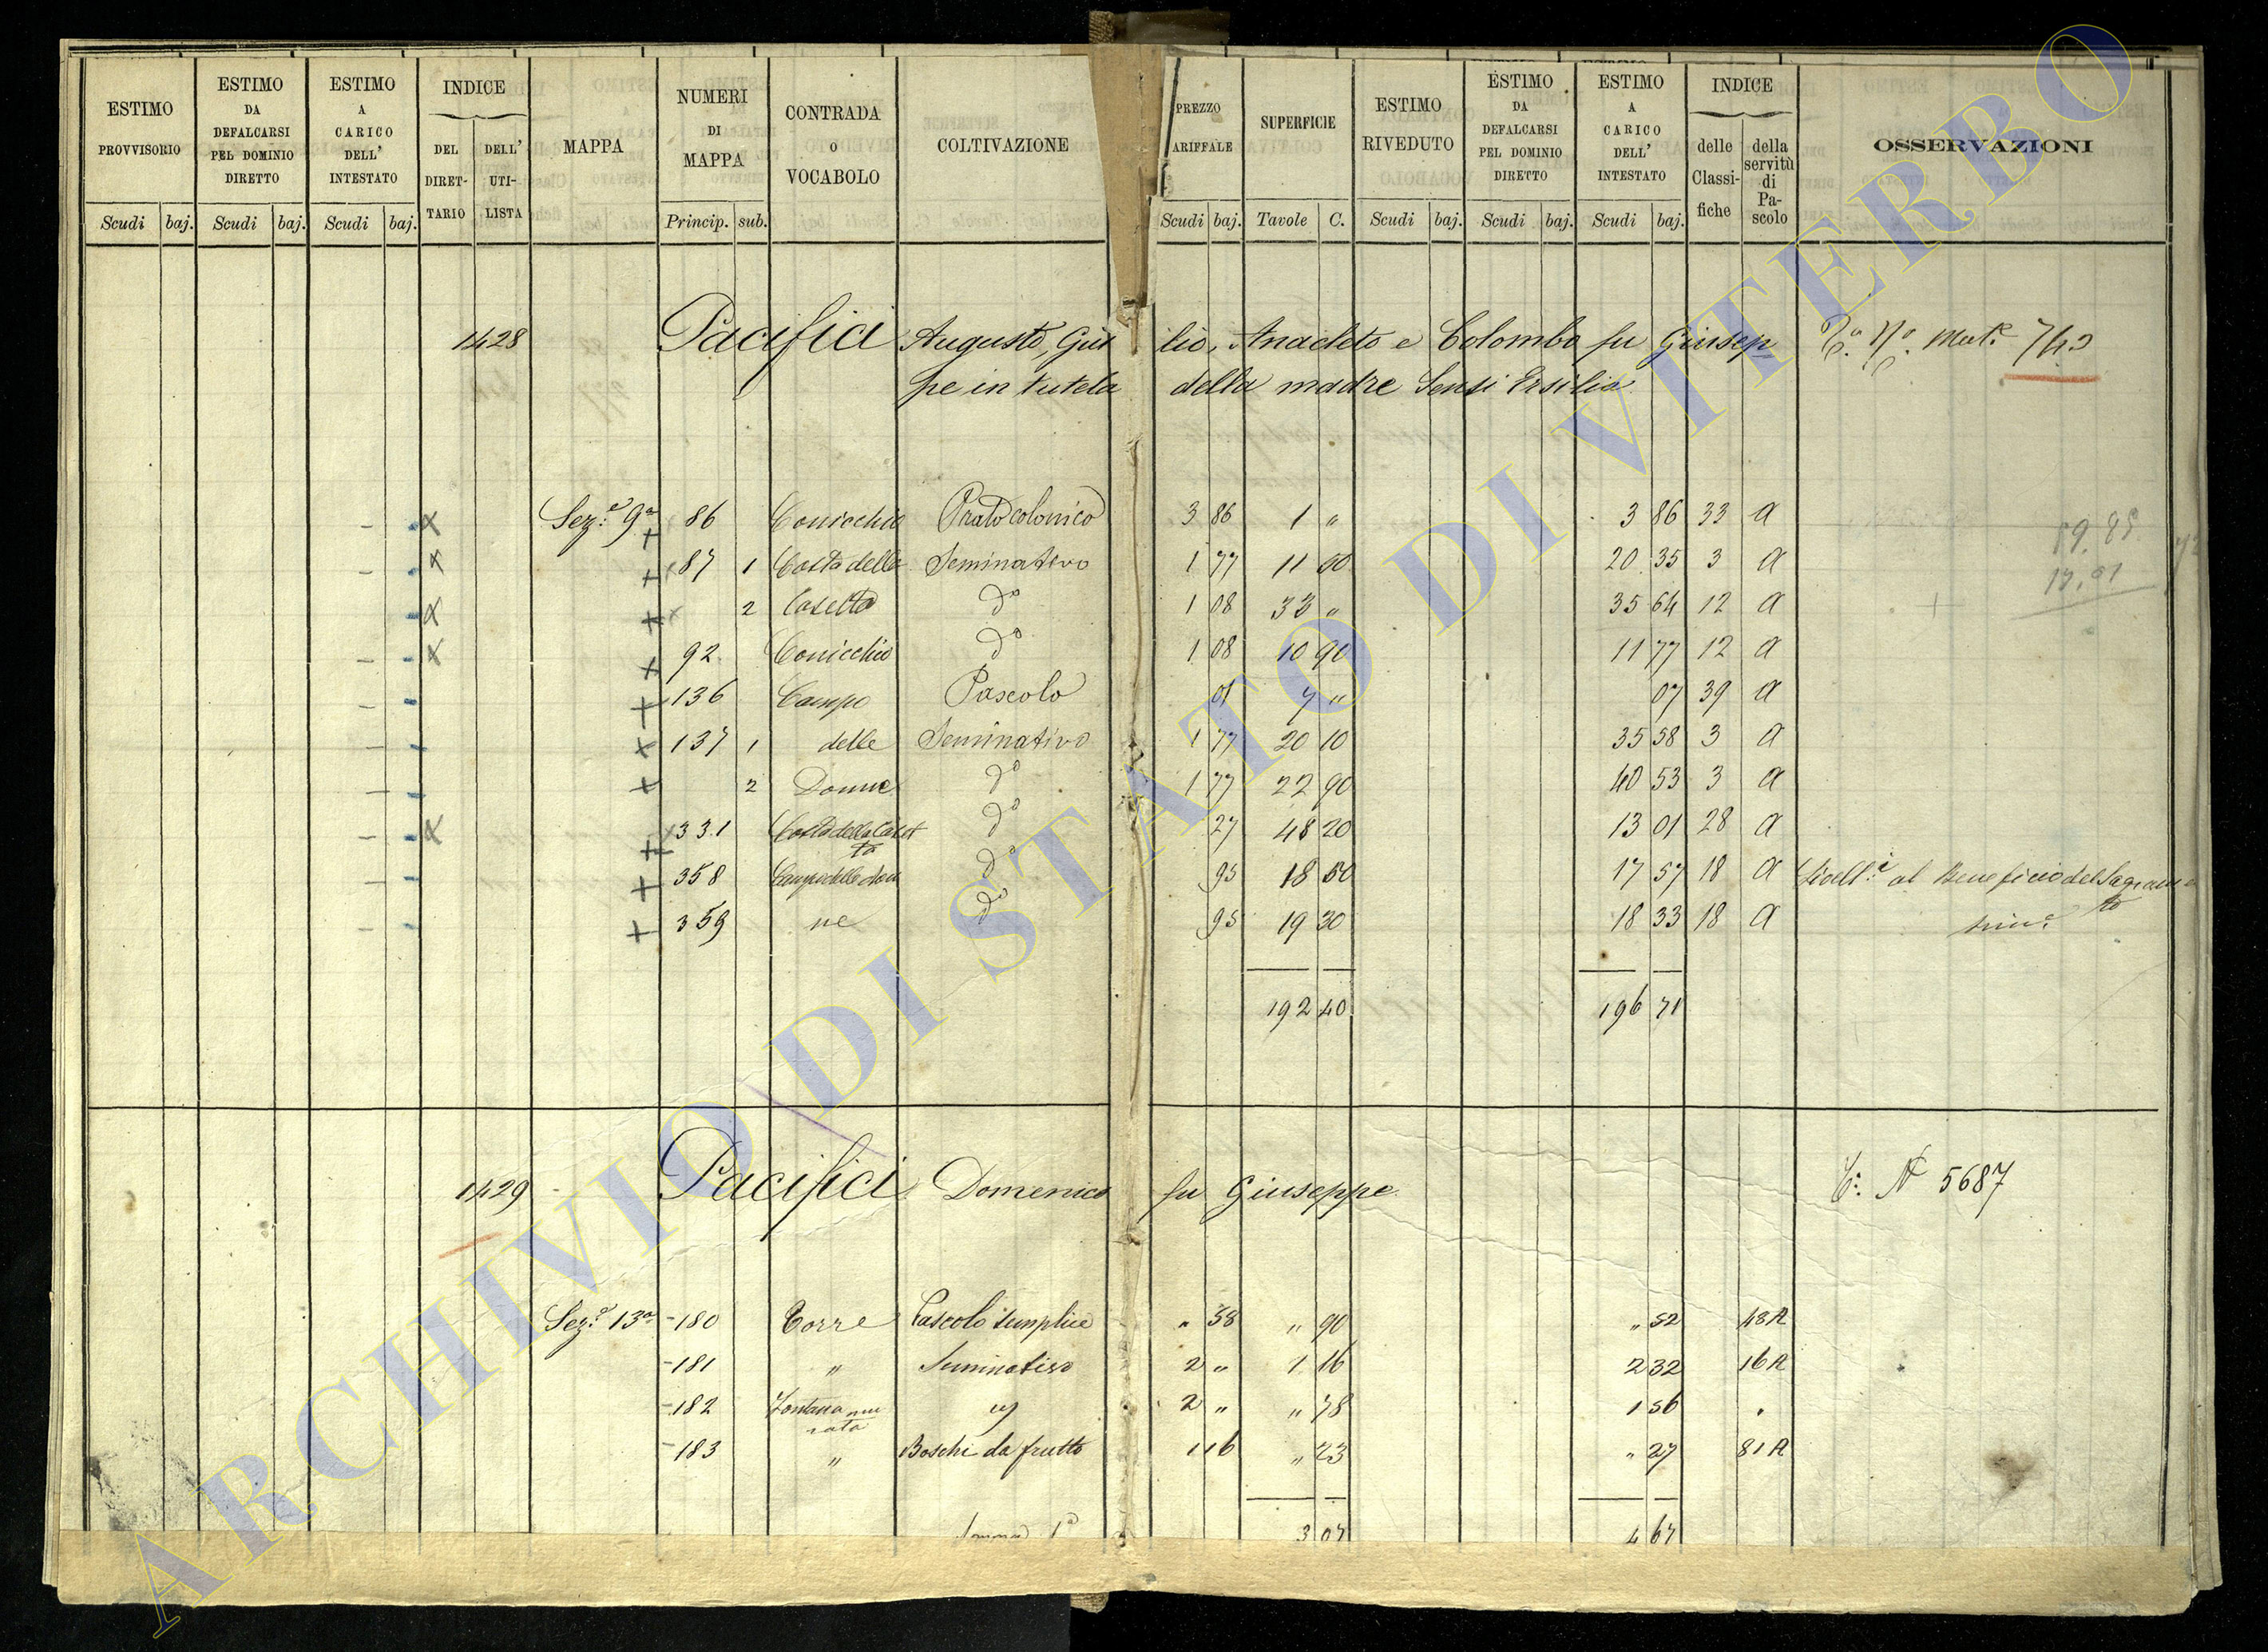 ESTIMO PROVVISORIO
ESTIMO DA DEFALCARSI PEL DOMINIO DIRETTO
ESTIMO A CARICO DELL' INTESTATO
INDICE
DEL DIRET-TARIO
DELL' UTI-LISTA
MAPPA
NUMERI DI MAPPA
CONTRADA O VOCABOLO
COLTIVAZIONE
PREZZO ARIFFALE
SUPERFICIE
ESTIMO RIVEDUTO
ESTIMO DA DEFALCARSI PEL DOMINIO DIRETTO
ESTIMO A CARICO DELL' INTESTATO
INDICE
delle Classi-fiche
della servitù di Pa-scolo
OSSERVAZIONI
Scudi baj. Scudi baj. Scudi baj. Princip. sub. Scudi baj. Tavole C. Scudi baj. Scudi baj. Scudi baj.
1428 Pacifici Augusto, Giulio, Anacleto e Colomba fu Giusep
pe in tutela della madre Sensi Ersilia
Sez.e 9a 86 Conicchio Prato colonico 3 86 1 " 3 86 33 a
87 1 Costa della Seminativo 1 77 11 50 20 35 3 a
2 Casetta do 1 08 33 " 35 64 12 a
92 Conicchio do 1 08 10 90 11 77 12 a
136 Campo Pascolo 01 7 " 07 39 a
137 1 delle Seminativo 1 77 20 10 35 58 3 a
2 Donne do 1 77 22 90 40 53 3 a
331 Costa della Caset
ta do 27 48 20 13 01 28 a
358 Campo delle don do 95 18 50 17 57 18 a Livell.e al Beneficio del Sagramen
to
359 ne do 95 19 30 18 33 18 a
192 40 196 71
1429 Pacifici Domenico fu Giuseppe C. N 5687
Sez.e 13a 180 Torre Pascolo semplice " 58 " 90 " 52 48 A
181 " Seminativo 2 " 1 16 2 32 16 A
182 Fontana mu
rata 2 " " 78 1 56
183 " Boschi da frutto 1 16 " 23 " 27 81 A
Somma 3 07 4 67
ARCHIVIO DI STATO DI VITERBO